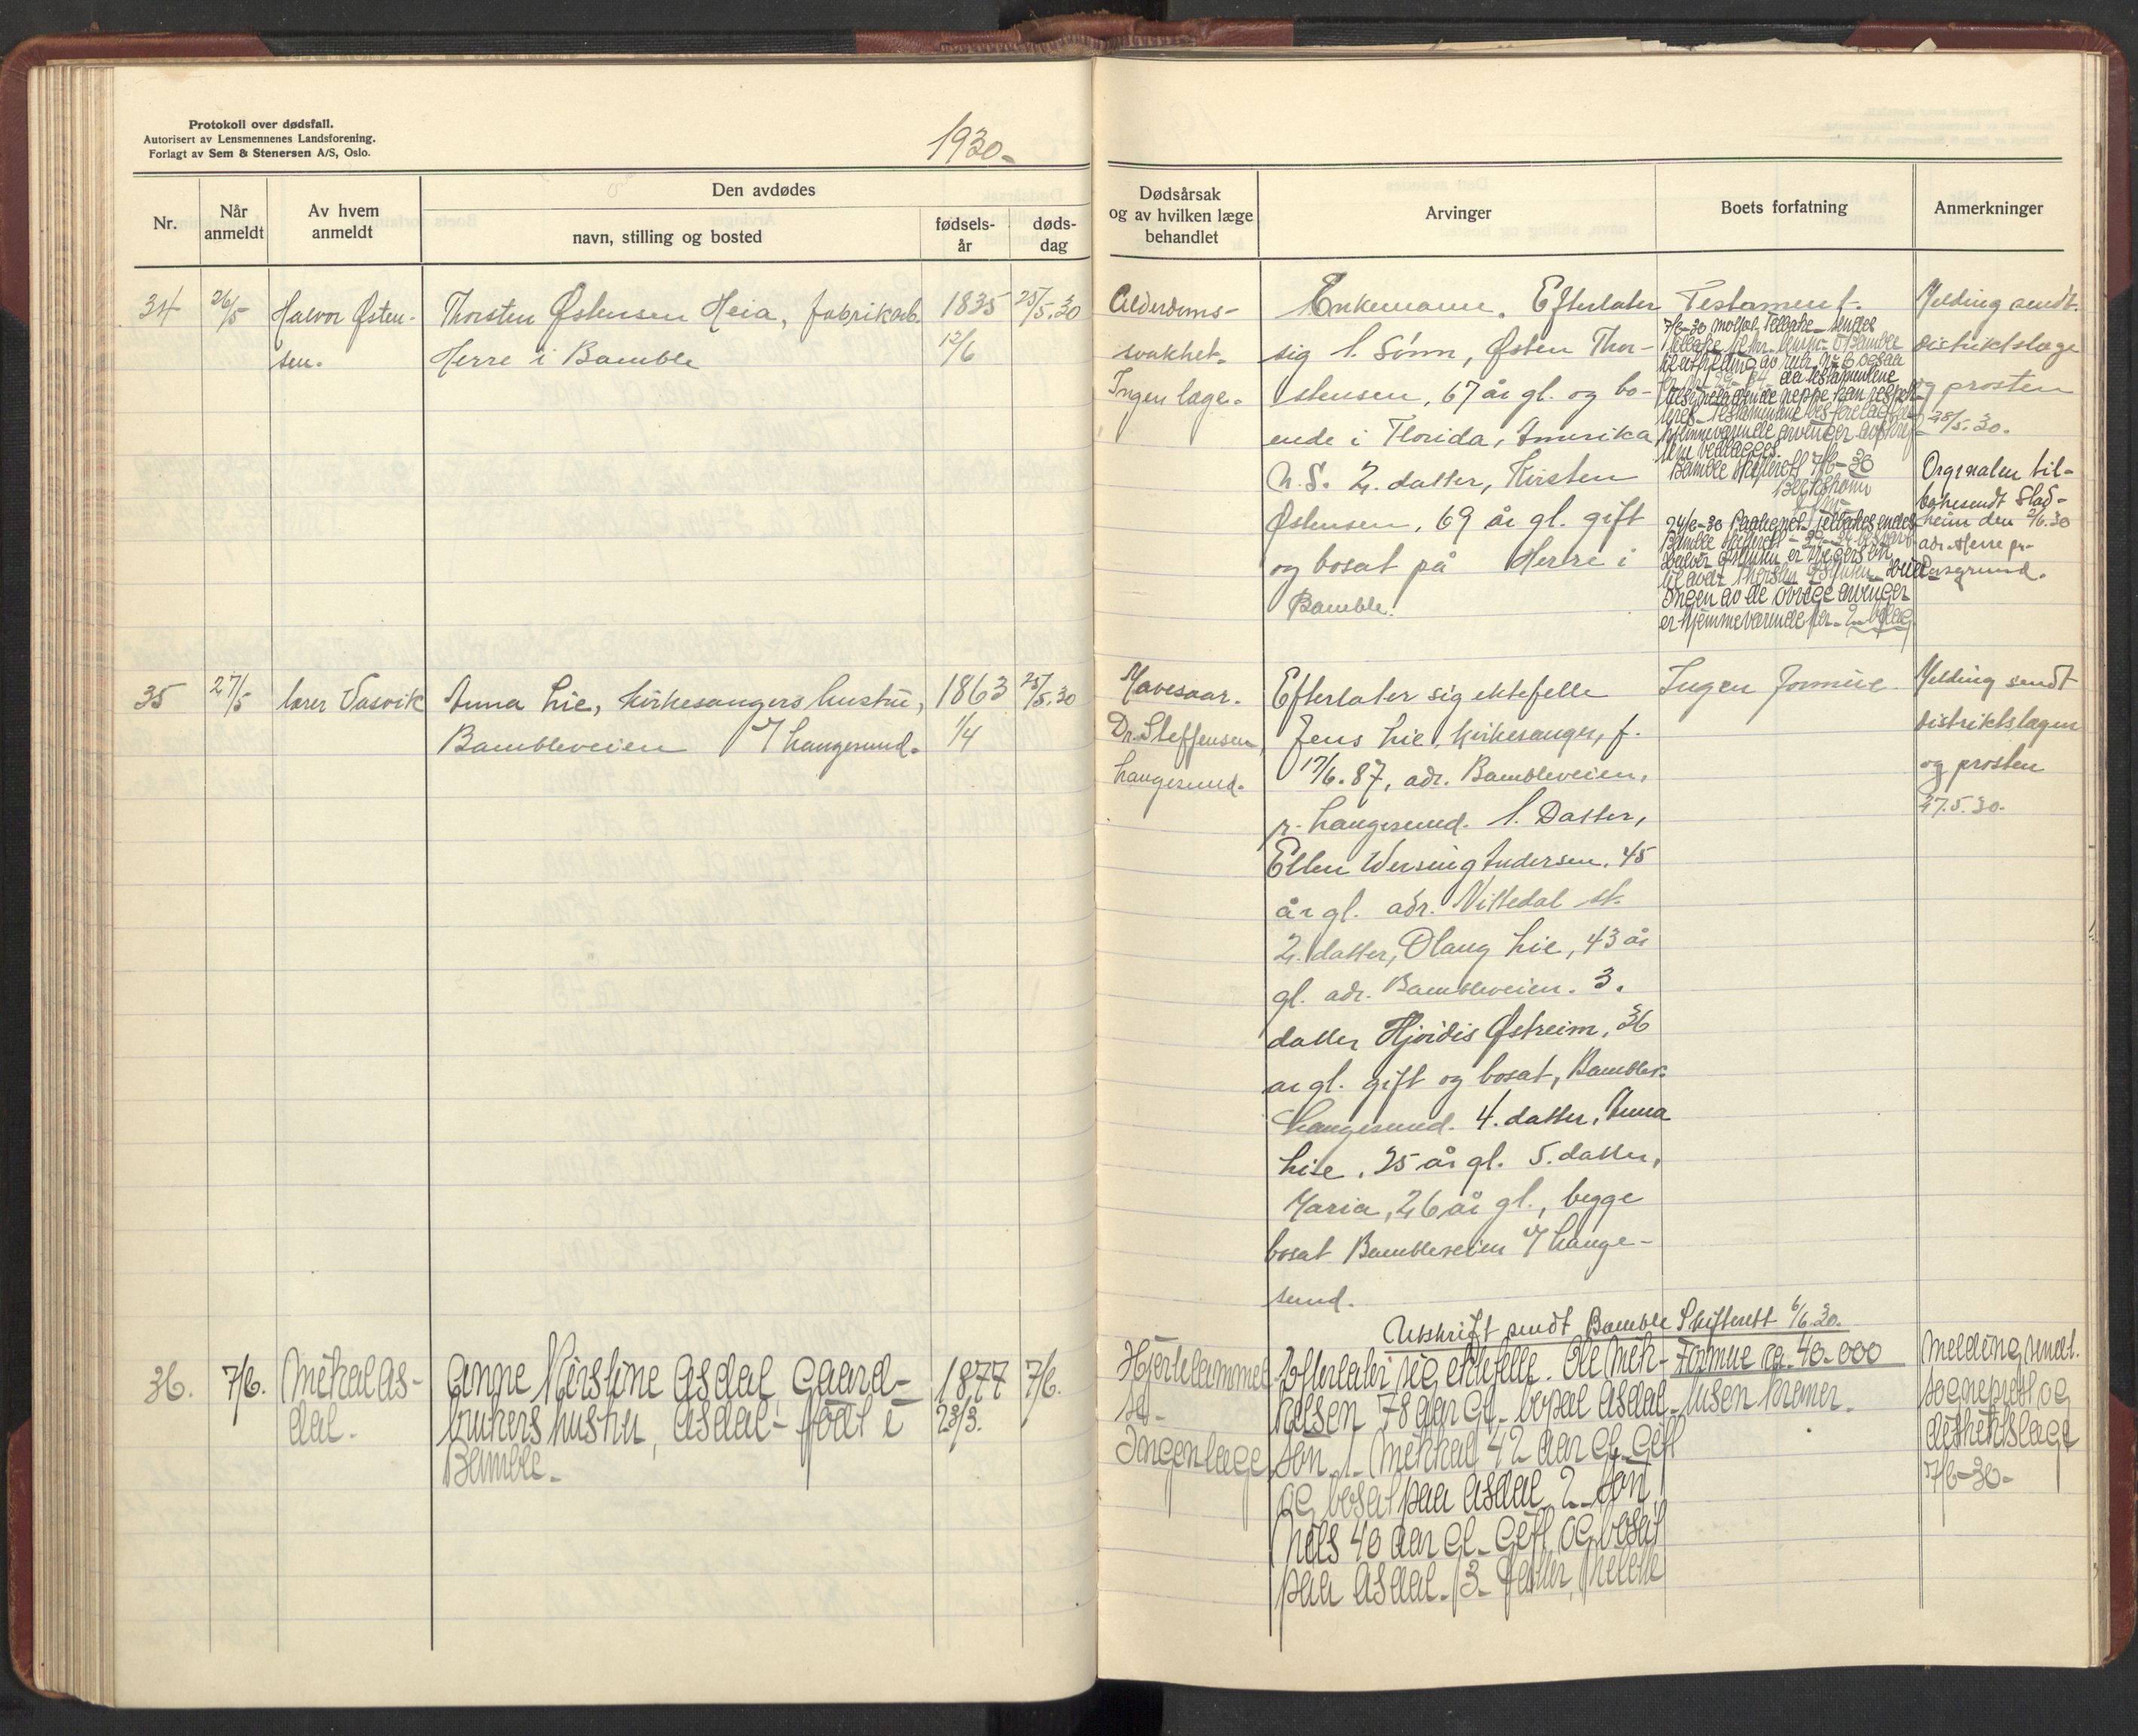 Protokoll over dødsfall.
Autorisert av Lensmennenes Landsforening.
Forlagt av Sem & Stenersen A/S, Oslo.
1930.
Nr.
Når anmeldt
Av hvem anmeldt
Den avdødes
navn, stilling og bosted
fødsels-år
døds-dag
Dødsårsak
og av hvilken læge
behandlet
Arvinger
Boets forfatning
Anmerkninger
34
26/5
Halvor Østen-
sen.
Thorsten Østensen Heia, fabrikarb.
Herre i Bamble
1835
12/6
25/5.30
Alderdoms-
svakhet.
Ingen læge.
Enkemann. Efterlater
sig 1. Sønn, Østen Thor-
stensen, 67 år gl. og bo-
ende i Florida, Amerika
N.S. 2. datter, Kirsten
Østensen, 69 år gl. gift
og bosat på Herre i
Bamble.
Testament.
7/6-30
Bamble Skifterett 7/6-30
24/6-30
Halvor Østensen er
til avdt Thorsten Østensen Heia
Ingen av de øvrige arvinger
er hjemmeværende
Melding sendt.
distriktslæge
og prosten
28/5.30.
Orginalen til-
bakesendt Stad-
heim den 2/6.30
adr. Herre pr.
Porsgrund.
35
27/5
lærer Vasvik
Anna Lie, Kirkesangers hustru,
Bambleveien Langesund.
1863
1/4
25/5.30
Mavesaar.
Dr. Steffensen,
Langesund.
Efterlater sig ektefelle
Jens Lie, kirkesanger, f.
17/6.87, adr. Bambleveien,
pr. Langesund. 1. Datter,
Ellen Wersing Andersen, 45
år gl. adr. Nittedal st.
2. datter, Olaug Lie, 43 år
gl. adr. Bambleveien. 3.
datter Hjordis Østreim, 36
år gl. gift og bosat, Bamblev.
Langesund. 4. datter, Anna
Lise, 25 år gl. 5. datter,
Maria, 26 år gl., begge
bosat Bambleveien Lange-
sund.
Utskrift sendt Bamble Skifterett 6/6 30.
Ingen formue.
Melding sendt
distriktslægen
og prosten
27.5.30.
36.
7/6.
Mekal As-
dal.
Anne Kirstine Asdal, Gaard-
brukers hustru, Asdal- født i
Bamble.
1877
23/3.
7/6.
Hjertelammel
se-
Ingen læge
Efterlater sig ektefelle. Ole Mik-
kelsen 78 aar gl. bosat Asdal.
Søn 1. Mekkal 42 aar gl. gift
og bosat paa Asdal 2. Søn
Nels 40 aar gl. gift og bosat
paa Asdal. 3. datter,
Formue ca. 40-000
tusen kroner.
Melding sendt.
sogneprest og
distriktslæge
7/6-30-